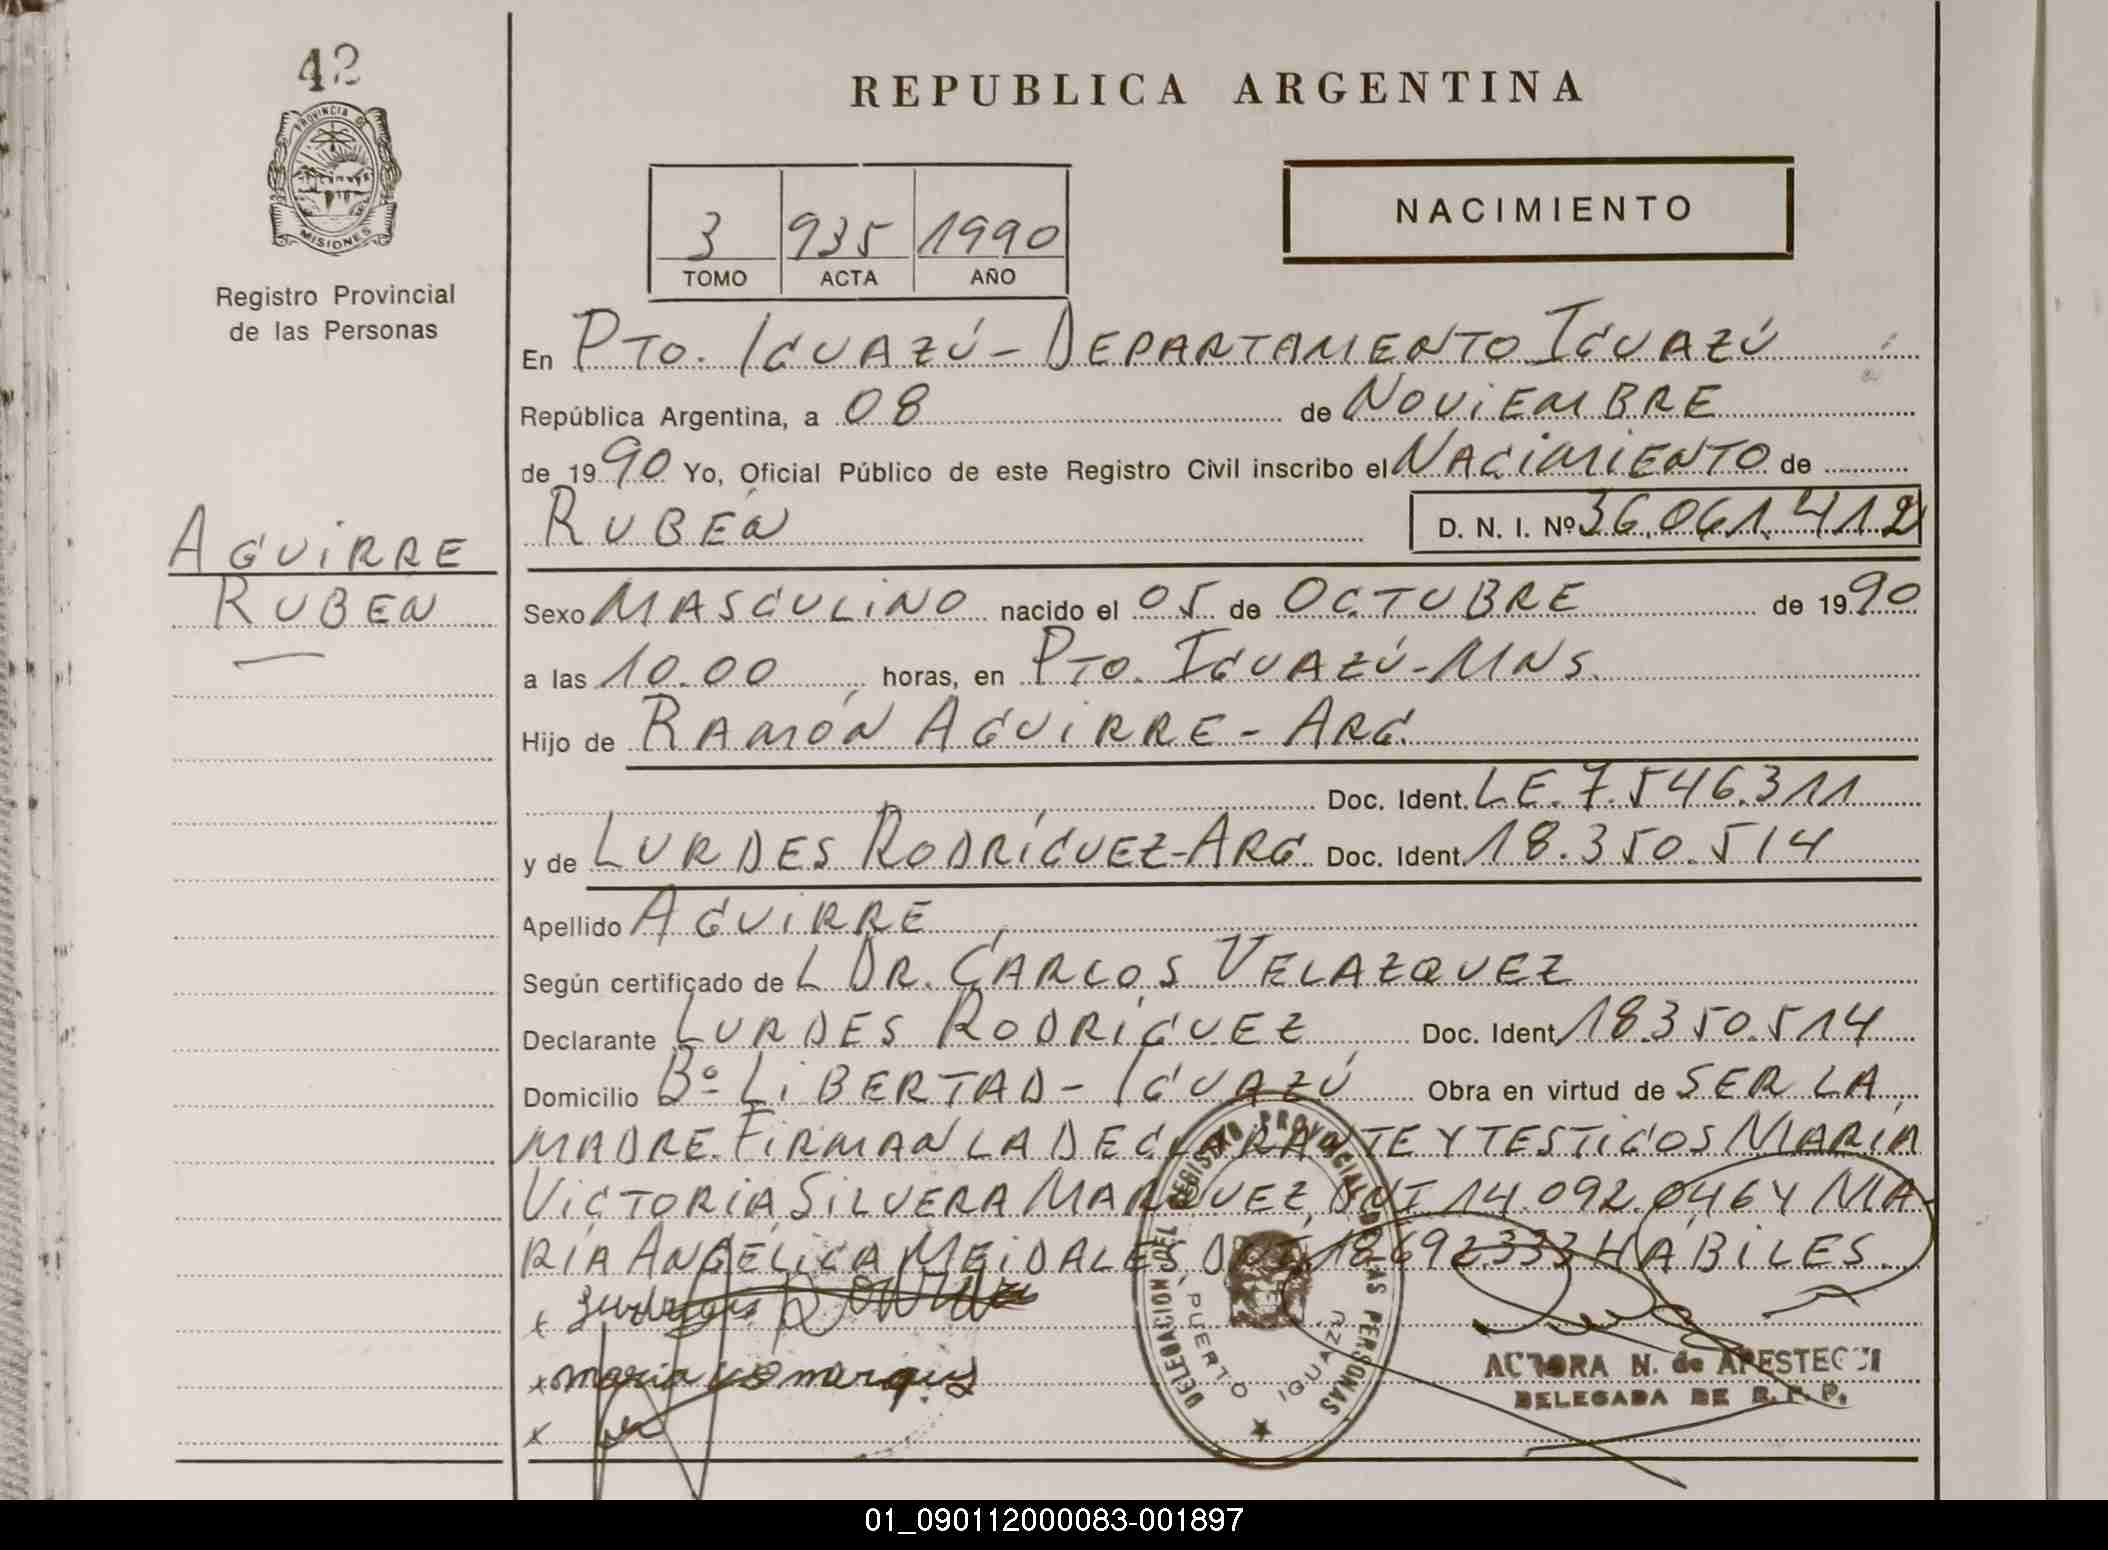 42
PROVINCIA D
MISIONES
Registro Provincial
de las Personas
AGUIRRE
RUBEN
REPUBLICA ARGENTINA
NACIMIENTO
3 935 1990
TOMO ACTA AÑO
En PTO. IGUAZÚ - DEPARTAMENTO IGUAZÚ
República Argentina, a 08 de NOVIEMBRE
de 1990 Yo, Oficial Público de este Registro Civil inscribo el NACIMIENTO de
RUBÉN D. N. I. Nº 36.061.412
Sexo MASCULINO nacido el 05 de OCTUBRE de 1990
a las 10.00 horas, en PTO. IGUAZÚ - MNS.
Hijo de RAMÓN AGUIRRE - ARG.
Doc. Ident. LE. 7.546.311
y de LURDES RODRÍGUEZ - ARG. Doc. Ident. 18.350.514
Apellido AGUIRRE
Según certificado de L DR. CARLOS VELAZQUEZ
Declarante LURDES RODRÍGUEZ Doc. Ident. 18.350.514
Domicilio Bº LIBERTAD - IGUAZÚ Obra en virtud de SER LA
MADRE. FIRMAN LA DECLARANTE Y TESTIGOS MARÍA
VICTORIA SILVERA MARQUEZ, DNI 14.092.046 Y MA-
RÍA ANGÉLICA MEIDALES, HÁBILES.
x
x maria marques
x
DELEGACION DEL REGISTRO PROVINCIAL DE LAS PERSONAS
PUERTO IGUAZU
AURORA N. de
DELEGADA DE R. P. P.
01_090112000083-001897